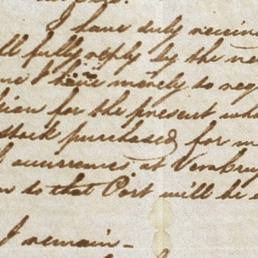 I have duly receive
ll fully reply by the ne
me I have merely to req
sion for the present wh
stock purchased for m
l occurrences at Vera Cruz
on to that Port will be
I remain -